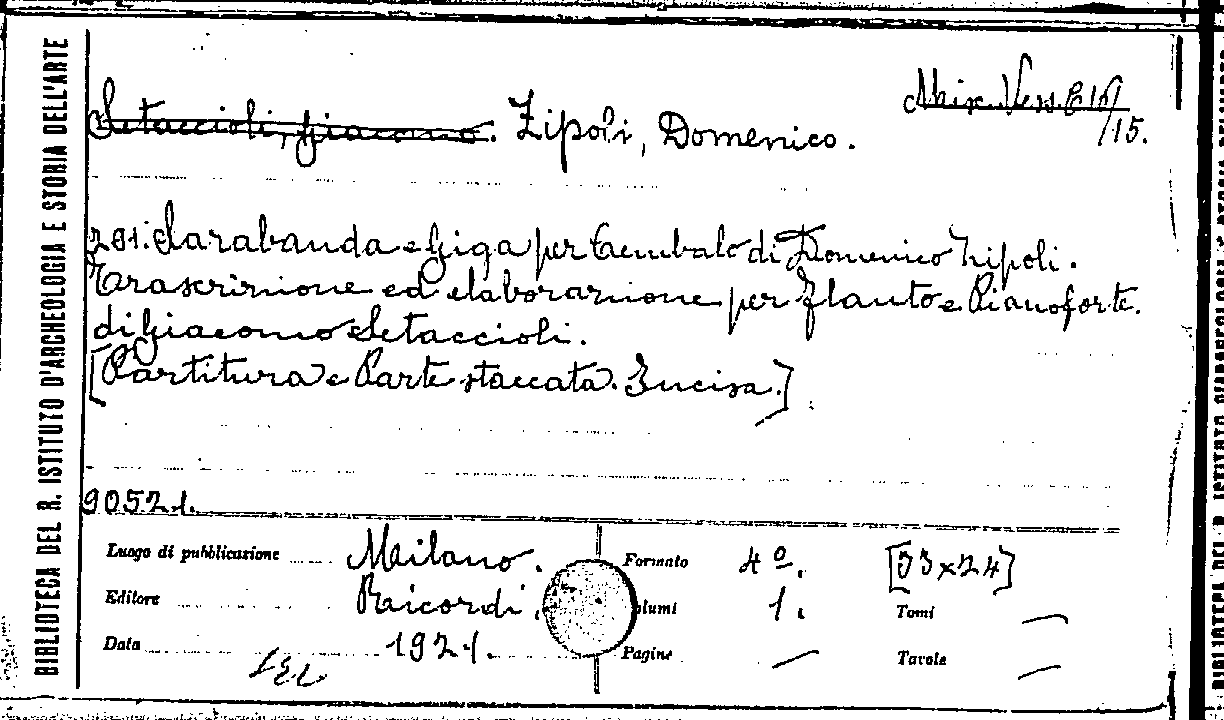 BIBLIOTECA DEL R. ISTITUTO D'ARCHEOLOGIA E STORIA DELL'ARTE
Setaccioli, Giacomo. Zipoli, Domenico.
Mix. Vess. E 16/15.
291. Sarabanda e Giga per Cembalo di Domenico Zipoli.
Trascrizione ed elaborazione per Flauto e Pianoforte.
di Giacomo Setaccioli.
[Partitura e Parte staccata. Incisa.]
90521.
Luogo di pubblicazione Milano. Formato 4º. [33x24]
Editore Ricordi. lumi 1. Tomi —
Data 1921. Pagine — Tavole —